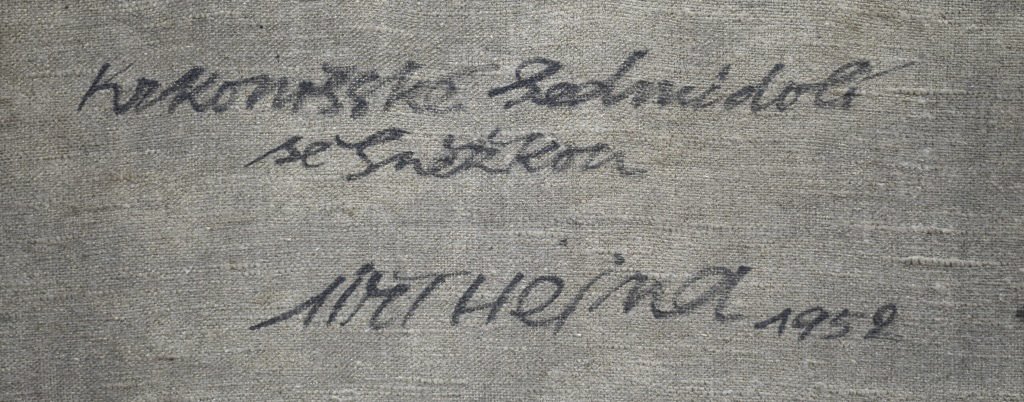 Krkonošské Sedmidolí
se Sněžkou
Hejna 1952